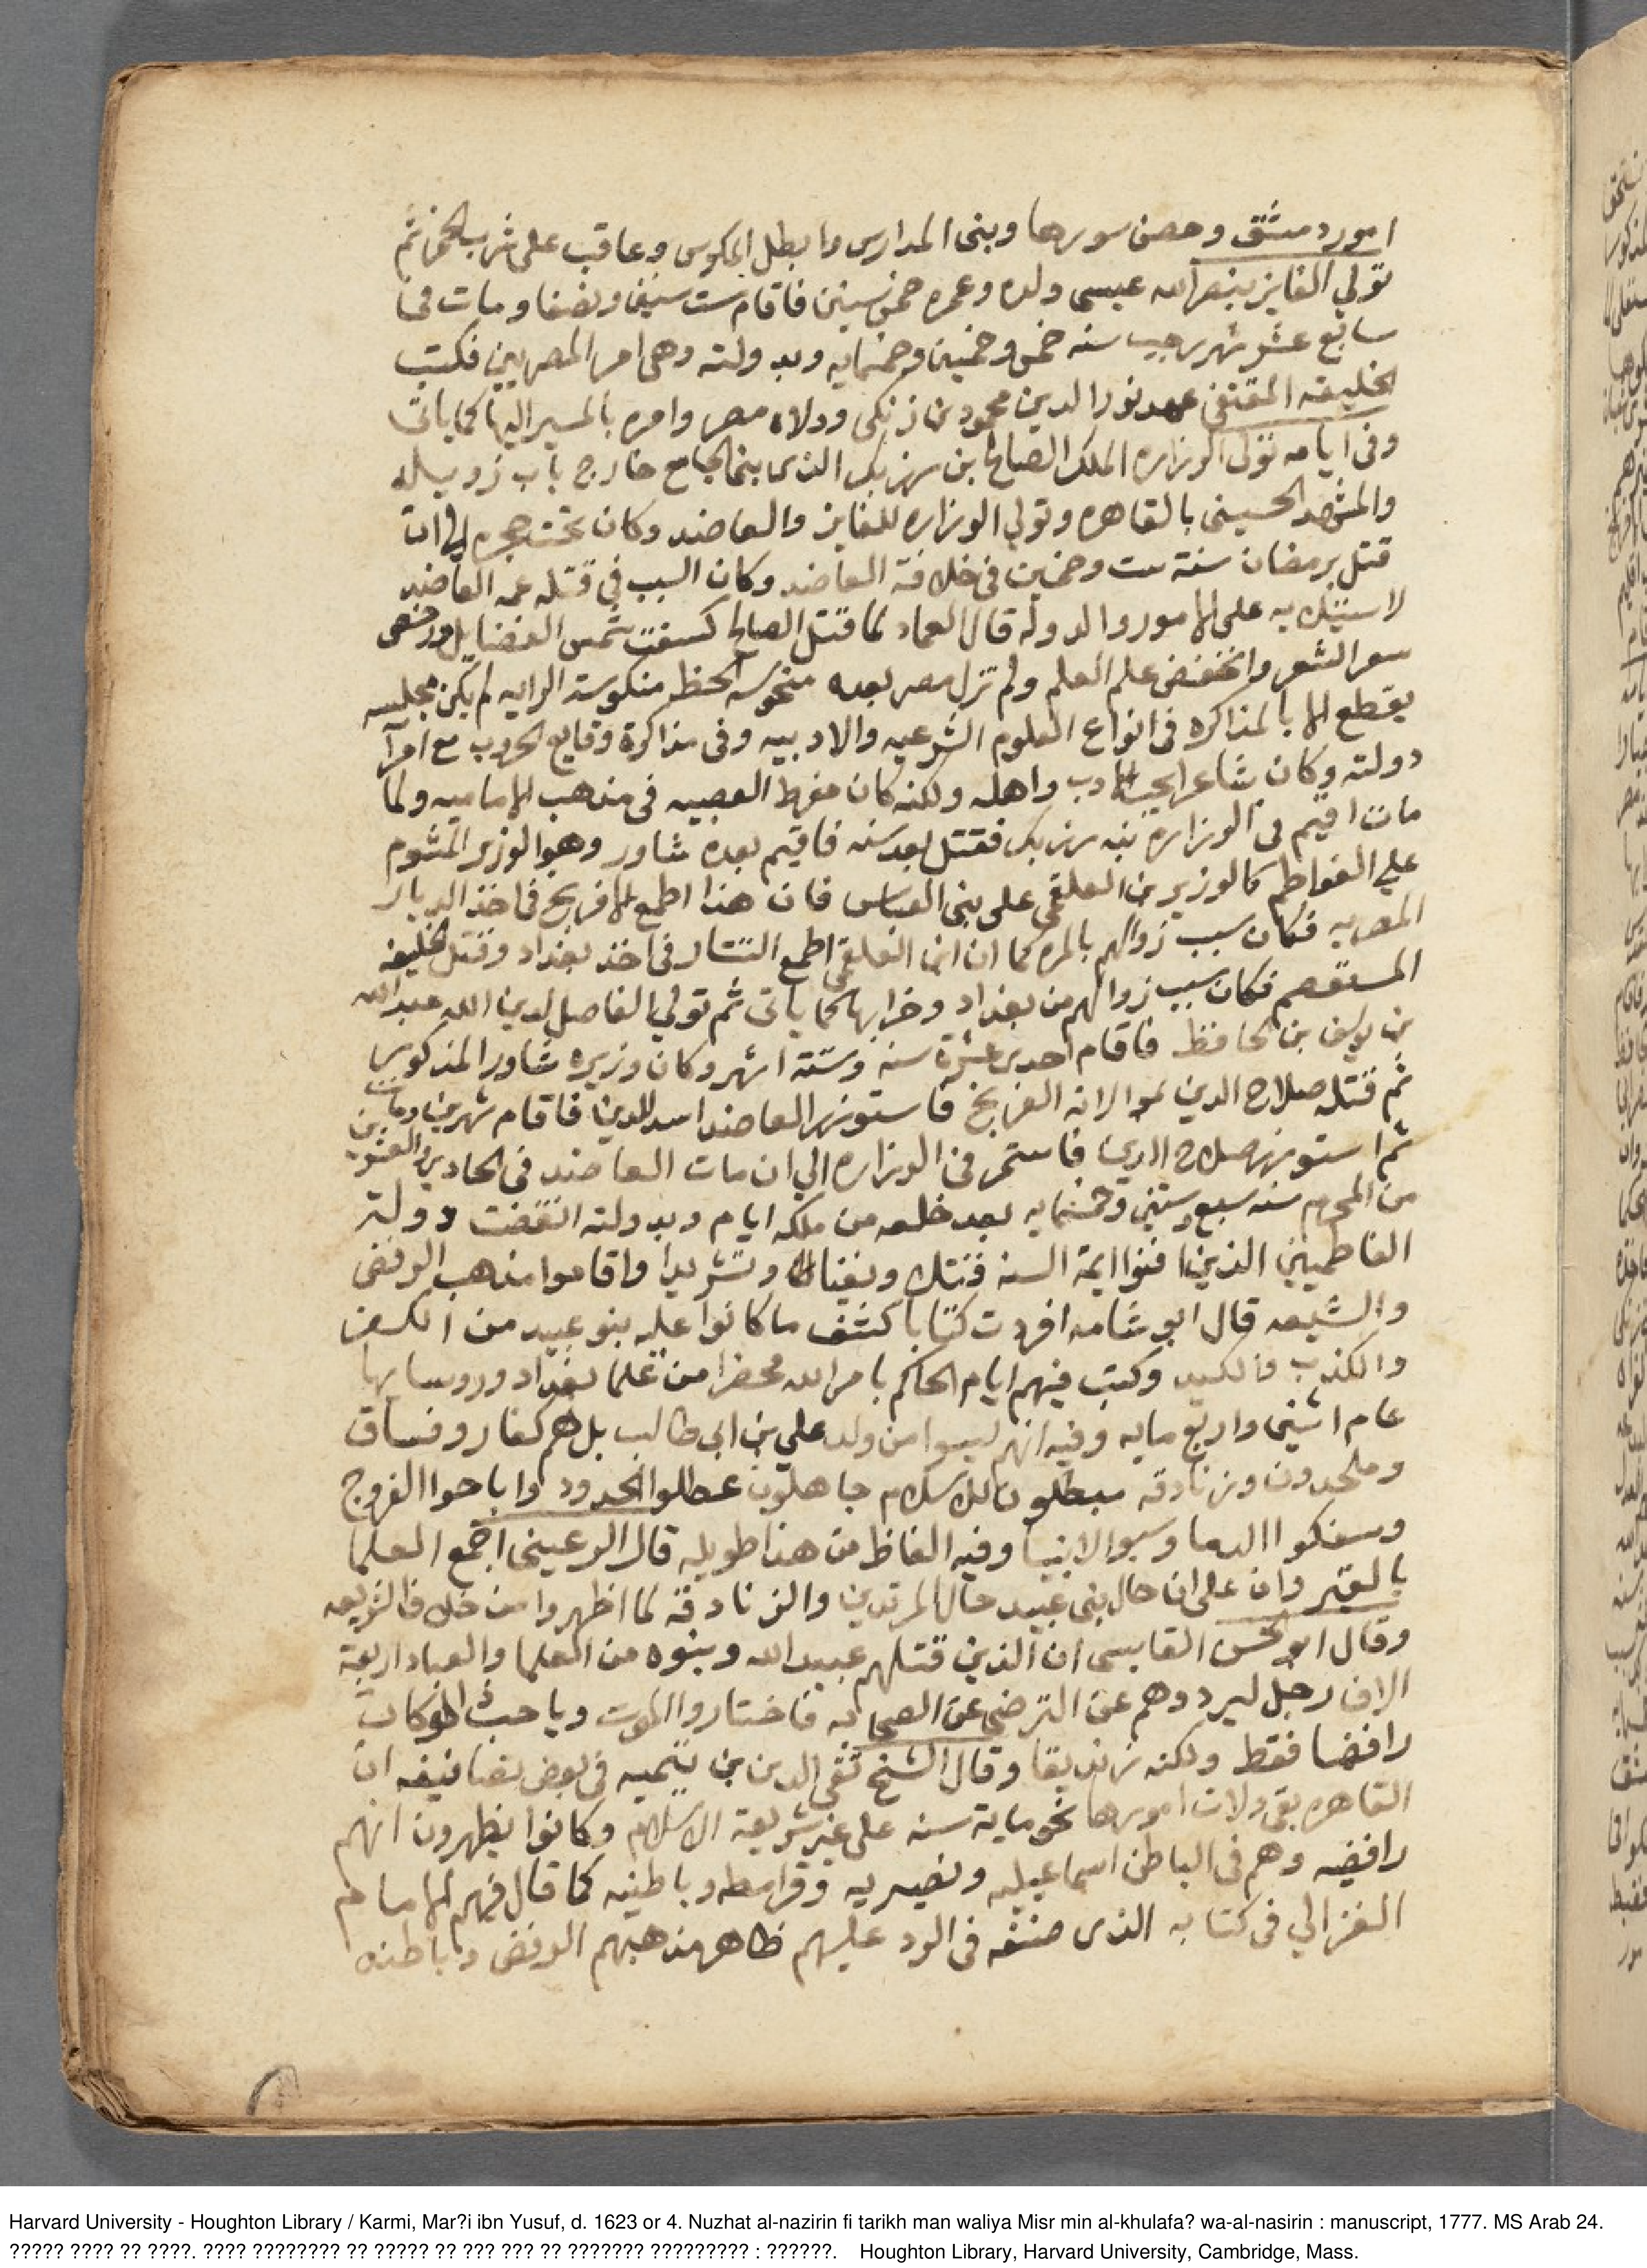 امور دمشق وحصن سورها وبنى المدارس وابطل المكوس وعاقب على شرب الخمر ثم
تولي الفايز بنصر الله عيسى ولده وعمره خمس سنين فاقام ست سنين ونصفا ومات في
سابع عشر شهر رجب سنه خمس وخمسين وخمسمايه وبدولته وهى امر المصريين فكتب
الخليفه المقتفى عهد نور الدين محمود بن زنكى وولاه مصر وامره بالمسير اليها كما ياتى
وفى ايامه تولى الوزاره الملك الصالح بن رزيك الذى بنى الجامع خارج باب زويله
والمشهد الحسينى بالقاهره وتولي الوزاره للفايز والعاضد وكان تحت حجره الى ان
قتل برمضان سنة ست وخمسين فى خلافة العاضد وكان السبب في قتله عمه العاضد
لاستيلايه على الامور والدوله قال العماد لما قتل الصالح كسفت شمس الفضايل ورخص
سعر الشعر وانخفض علم العلم ولم تزل مصر بعده منحوسه الحظ منكوسة الرايه لم يكن مجلسه
يقطع الا بالمذاكره فى انواع العلوم الشرعيه والادبيه وفى مذاكرة وقايع الحروب مع امرآ
دولته وكان شاعرا يحب الادب واهله ولكنه كان مفرط العصبيه فى مذهب الاماميه ولما
مات اقيم فى الوزارة ابنه رزيك فقتل بعد سنه فاقيم بعده شاور وهو الوزير المشوم
علي الفواطم كالوزير بن العلقمى على بنى العباس فان هذا اطمع الافرنج في اخذ الديار
المصريه فكان سبب زوالهم بالمره كما ان ابن العلقمى اطمع التتار فى اخذ بغداد وقتل الخليفه
المستعصم فكان سبب زوالهم من بغداد وخرابها كما ياتى ثم تولي العاضد لدين الله عبد الله
بن يوسف بن الحافظ فاقام احدى عشرة سنه وستة اشهر وكان وزيره شاور المذكور
ثم قتله صلاح الدين لموالاته الفرنج فاستوزر العاضد اسد الدين فاقام شهرين ومات
ثم استوزر صلاح الدين فاستمر فى الوزاره الي ان مات العاضد فى الحادي والعشرين
من المحرم سنه سبع وستين وخمسمايه بعد خلعه من ملكه ايام وبدولته انقضت دولة
الفاطميين الذين افنوا ايمة السنه قتلا ونفيا وتشريدا واقاموا مذهب الرفض
والشيعه قال ابو شامه افردت كتابا كشف ما كانوا عليه بنو عبيد من الكفر
والكذب والكيد وكتب فيهم ايام الحاكم بامر الله محضرا من علما بغداد وروسايها
عام اثنين واربع مايه وفيه انهم ليسوا من ولد علي بن ابي طالب بل هم كفار وفساق
وملحدون وزنادقه مبطلون للاسلام جاهلون عطلوا الحدود واباحوا الفروج
وسفكوا الدما وسبوا الانبيا وفيه الفاظ من هذا طويله قال الرعينى اجمع العلما
بالقيروان على ان حال بنى عبيد حال المرتدين والزنادقة لما اظهروا من خلاف الشريعه
وقال ابو الحسن القابسى ان الذين قتلهم عبيد الله وبنوه من العلما والعباد اربعة
الاف رجل ليردوهم عن الترضى عن الصحابه فاختاروا الموت ويا حبذا لو كان
رافضيا فقط ولكنه زنديقا وقال الشيخ تقى الدين بن تيميه فى بعض تصانيفه ان
القاهره بقى ولات امورها نحو ماية سنه على غير شريعة الاسلام وكانوا يظهرون انهم
رافضه وهم فى الباطن اسماعيليه ونصيريه وقرامطه وباطنيه كما قال فيهم الامام
الغزالي فى كتابه الذى صنفه فى الرد عليهم ظاهر مذهبهم الرفض وباطنه
Harvard University - Houghton Library / Karmi, Mar?i ibn Yusuf, d. 1623 or 4. Nuzhat al-nazirin fi tarikh man waliya Misr min al-khulafa? wa-al-nasirin : manuscript, 1777. MS Arab 24.
????? ???? ?? ????. ???? ???????? ?? ????? ?? ??? ??? ?? ??????? ????????? : ??????. Houghton Library, Harvard University, Cambridge, Mass.